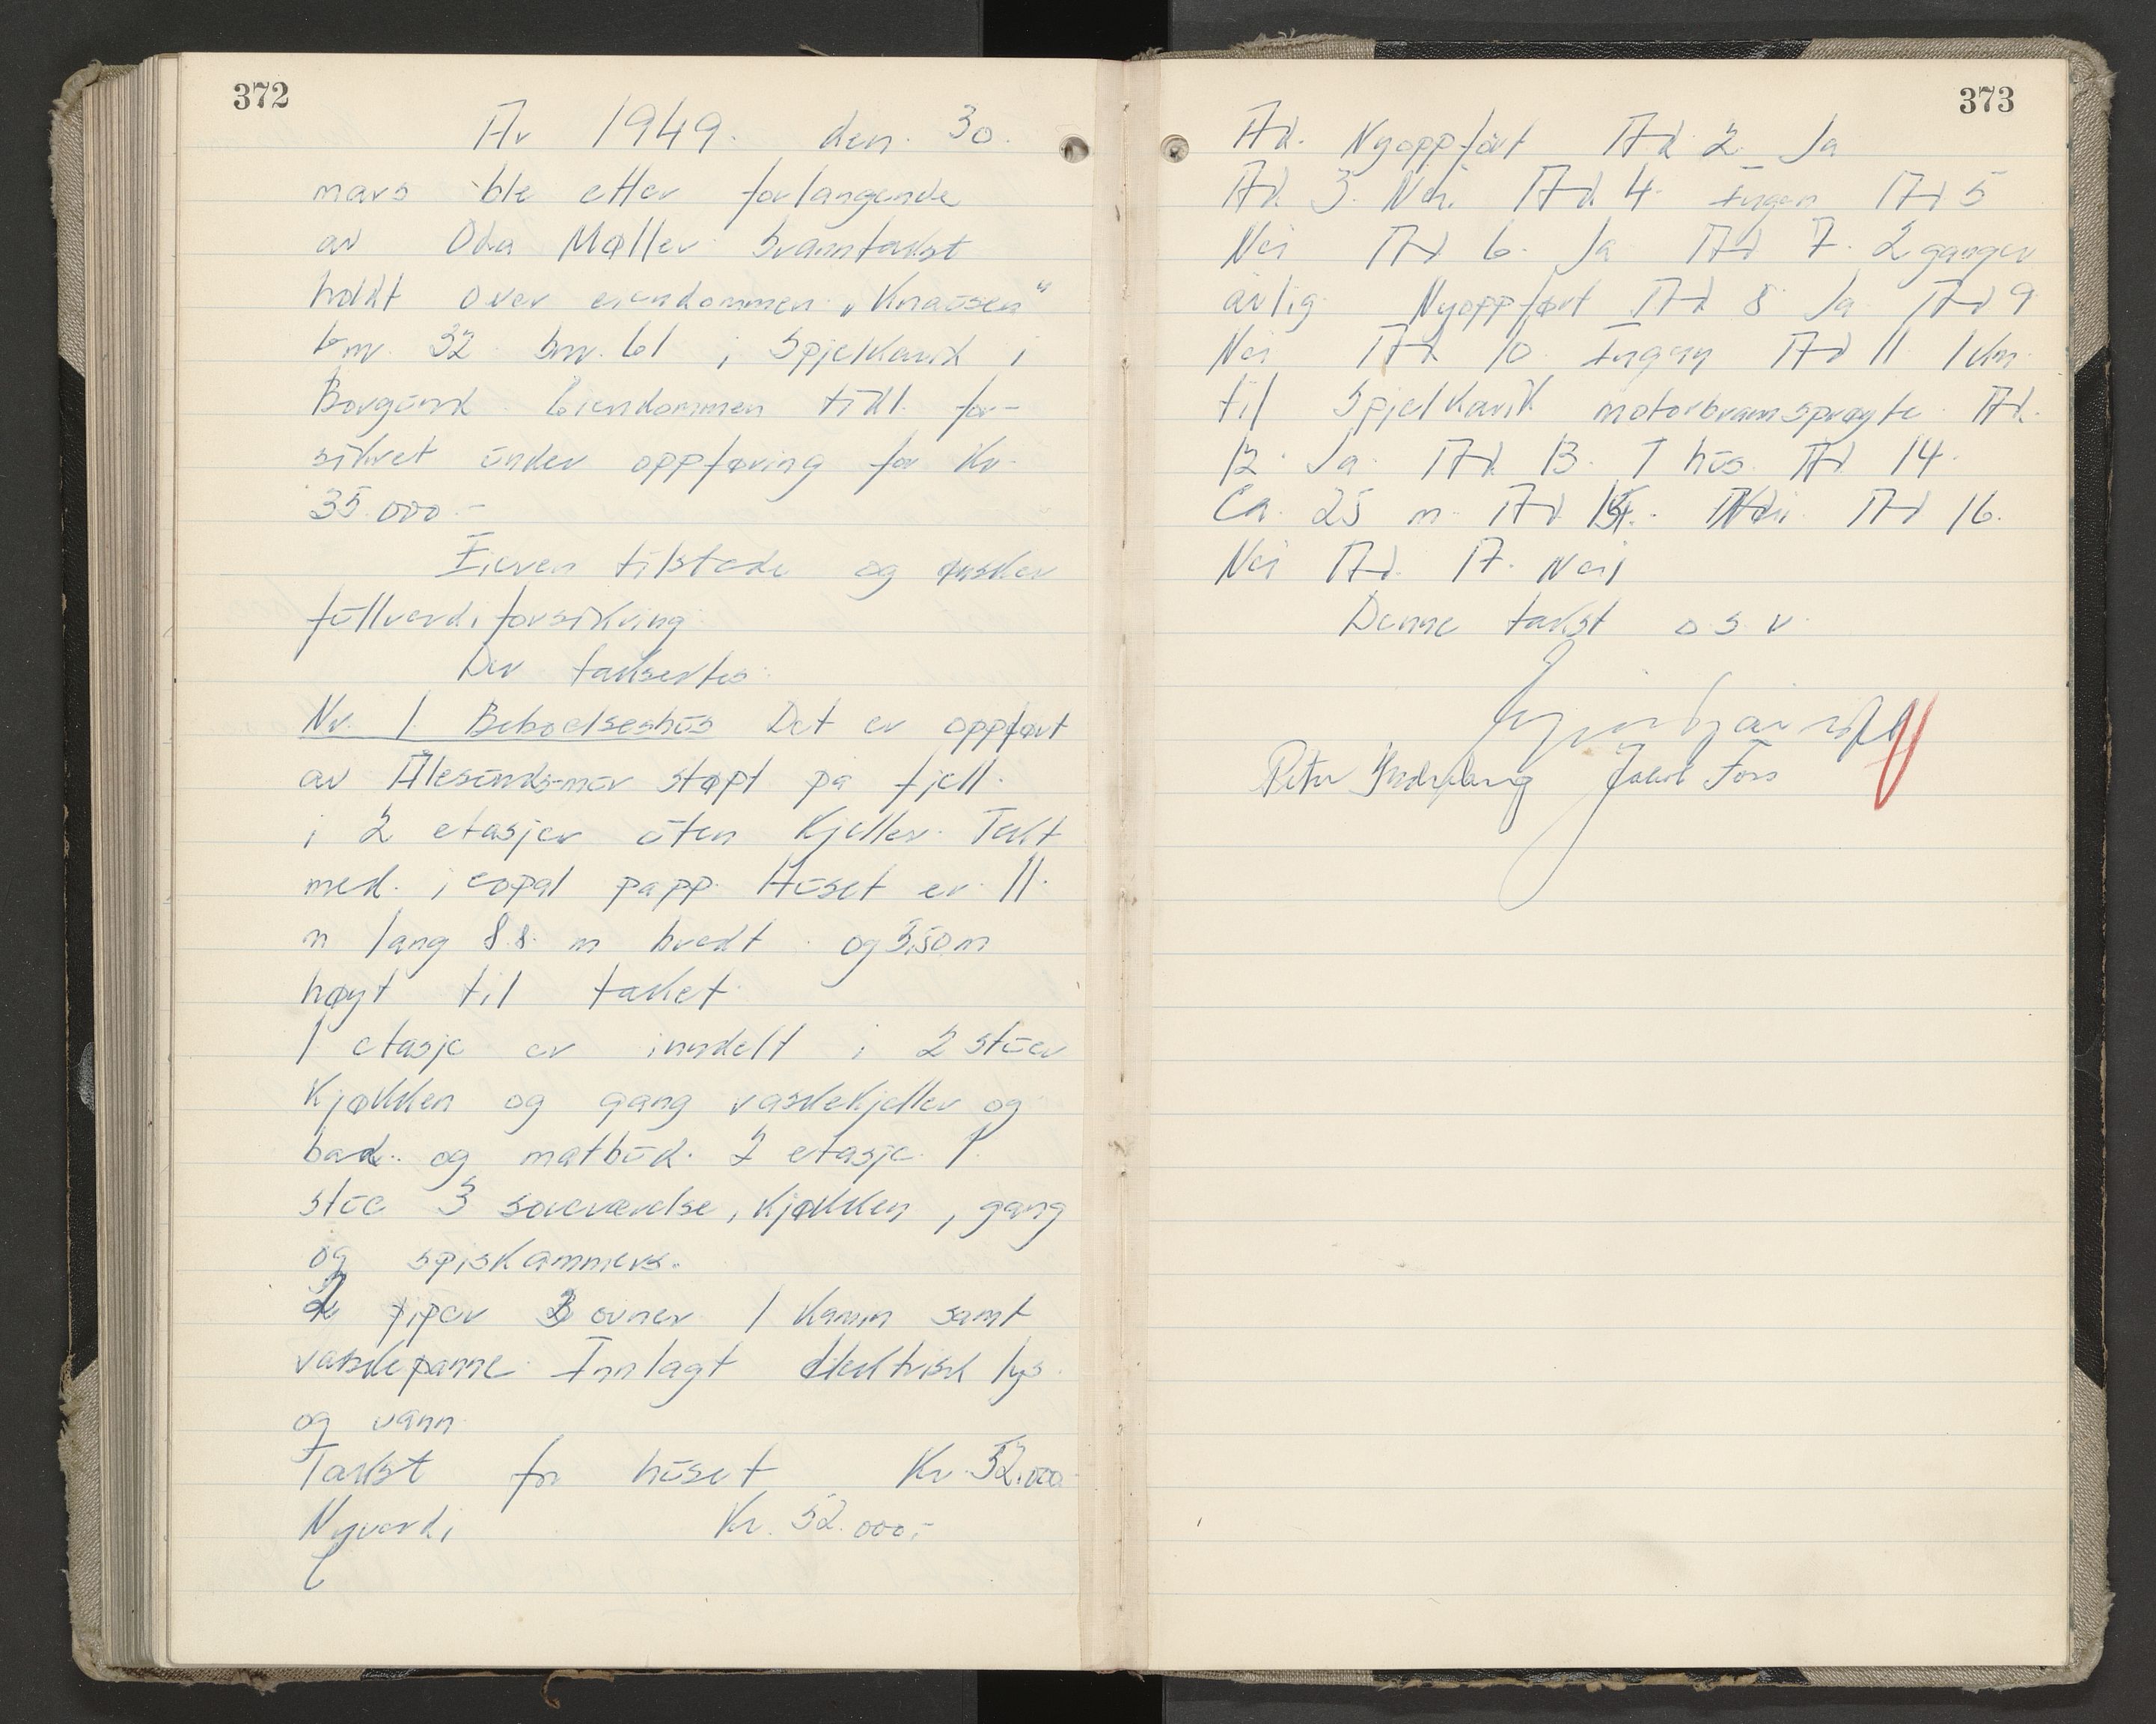 372
År 1949. den. 30.
mars ble etter forlangende
av Oda Møller branntakst
holdt over eiendommen „Knausen"
bnr. 32 bnr. 61 i Spjelkavik i
Borgund. Eiendommen tidl. for-
sikret under oppføring for Kr.
35.000.-
Eieren tilstede og ønsker
fullverdiforsikring.
Der taksertes:
Nr. 1. Beboelseshus Det er oppført
av Ålesunds-mur støpt på fjell.
i 2 etasjer uten kjeller. Tekt
med icopal papp. Huset er 11.
m lang 8.8. m bredt og 5,50 m
høyt til taket.
1 etasje er inndelt i 2 stuer
kjøkken og gang vaskekjeller og
bad.. og matbud. 2 etasje. 1.
stue 3 soveværelse, kjøkken, gang
og spiskammers.
2 piper 3 ovner 1 kamin samt
vaskepanne. Innlagt elektrisk lys
og vann.
Takst for huset Kr. 52.000.-
Nyverdi Kr. 52.000,-
373
Ad. Nyoppført Ad 2. Ja
Ad. 3. Nei. Ad. 4. Ingen Ad 5
Nei Ad 6. Ja Ad 7. 2 ganger
årlig. Nyoppført Ad 8 Ja Ad 9
Nei Ad 10. Ingen Ad 11 1 km.
til Spjelkavik motorbrannsprøyte. Ad.
12. Ja. Ad. 13. 1 hus. Ad. 14.
Ca. 25 m. Ad 15. Nei. Ad 16.
Nei Ad. 17. Nei
Denne takst o.s.v.
Peter Jakob Fors